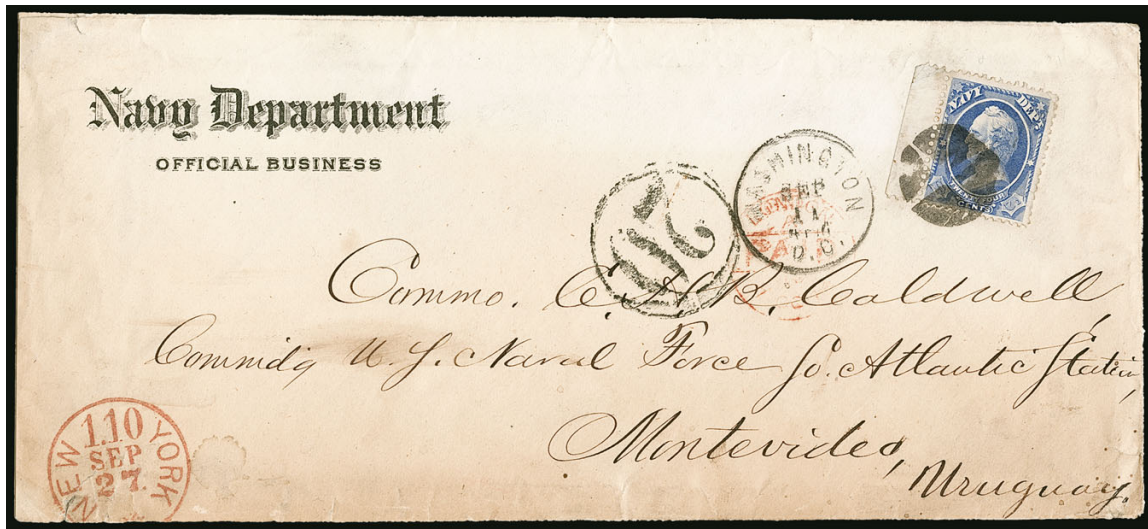 Navy Department
OFFICIAL BUSINESS
NAVY DEPT.
TWENTY FOUR
CENTS
WASHINGTON
SEP
11
D.C.
20
Commo. C. H. B. Caldwell,
Commdg U. S. Naval Force So. Atlantic Station,
Montevideo,
Uruguay.
NEW YORK
1.10
SEP
27.